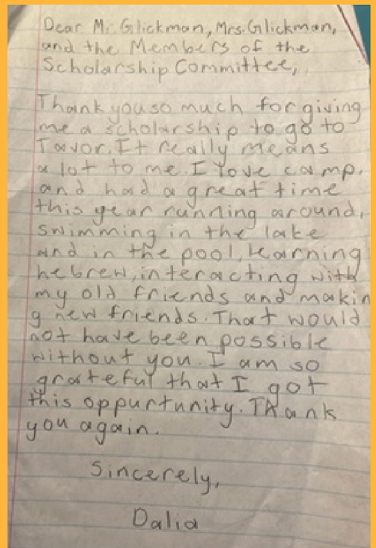 Dear Mr. Glickman, Mrs. Glickman,
and the Members of the
Scholarship Committee,
Thank you so much for giving
me a scholarship to go to
Tavor. It really means
a lot to me. I love camp,
and had a great time
this year running around,
swimming in the lake
and in the pool, learning
hebrew, interacting with
my old friends and makin
g new friends. That would
not have been possible
without you. I am so
grateful that I got
this oppurtunity. Thank
you again.
Sincerely,
Dalia